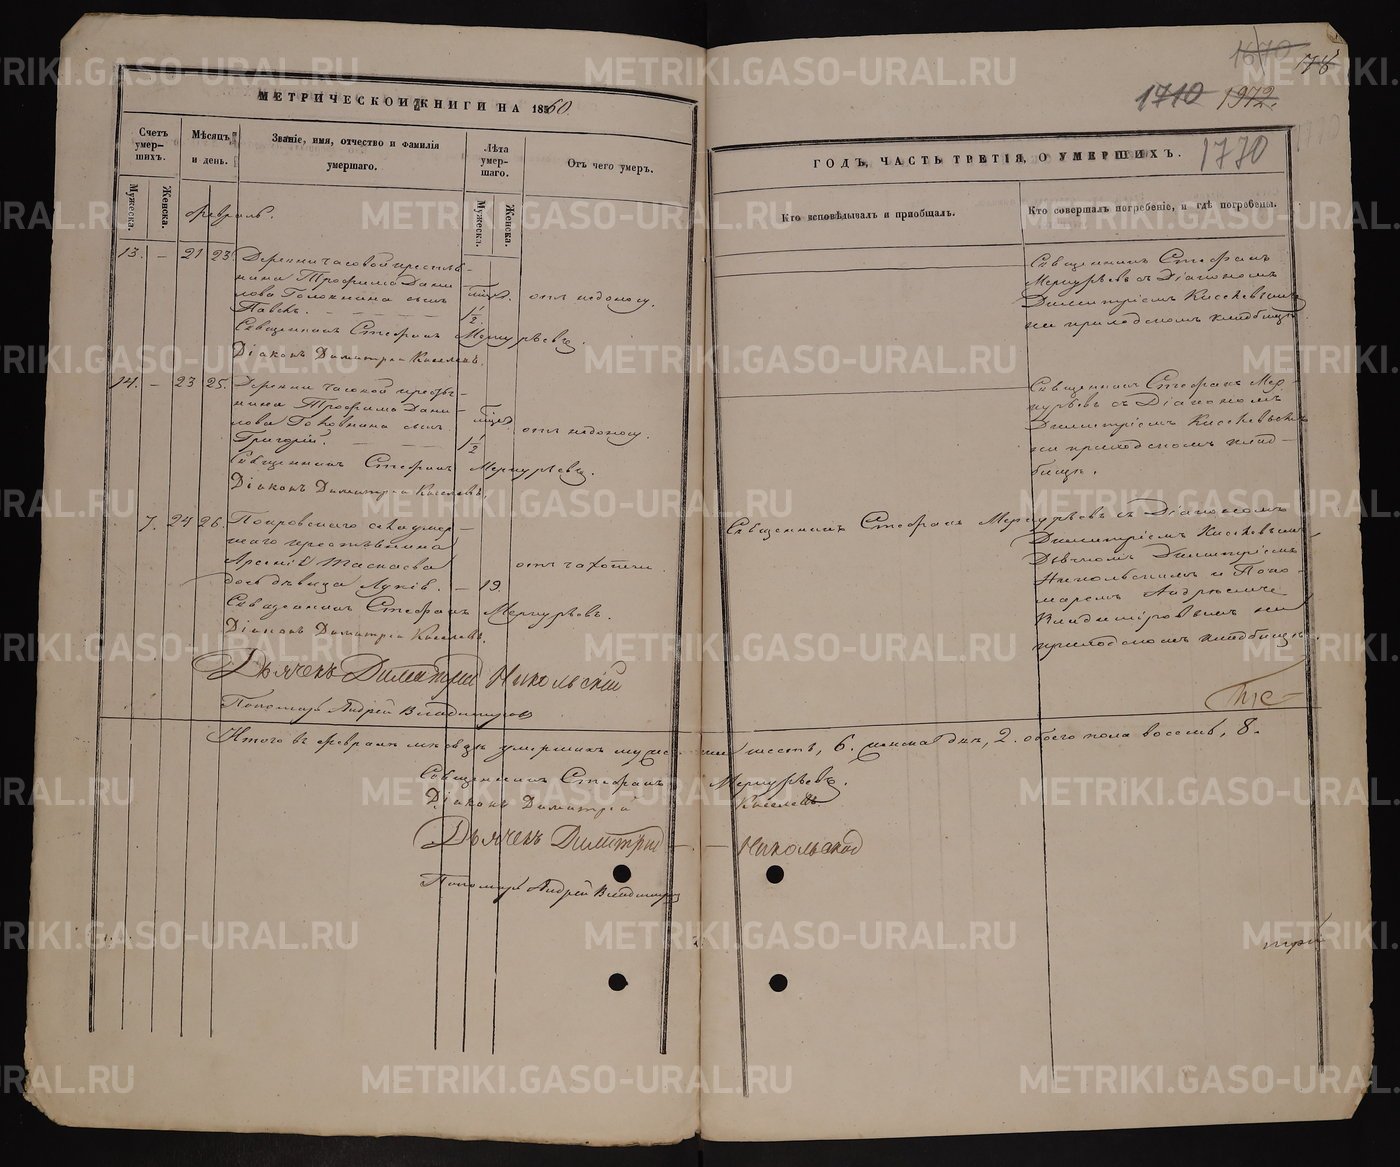 МЕТРИЧЕСКОЙ КНИГИ НА 1860
Счетъ умер-шихъ.
Мужеска.
Женска.
Мѣсяцъ и день.
Званіе, имя, отчество и фамилія умершаго.
Лѣта умер-шаго.
Мужеска.
Женска.
Отъ чего умеръ.
Февраль.
13. – 21 23
Деревни Часовой крестья-
нина Трофима Дани-
лова Голокнина сынъ
Павелъ.
1/2.
отъ недоносу.
Священникъ Стефанъ Меркурьевъ.
Діаконъ Димитрій Киселевъ.
14. – 23 25.
Деревни Часовой крестья-
нина Трофима Дани-
лова Голокнина сынъ
Григорій.
1/2
отъ недоносу.
Священникъ Стефанъ Меркурьевъ.
Діаконъ Димитрій Киселевъ.
7. 24 26.
Покровскаго
крестьянина
Арсенія
дочь дѣвица
– 19.
отъ чахотки.
Священникъ Стефанъ Меркурьевъ.
Діаконъ Димитрій Киселевъ.
Дьячекъ Димитрій Никольскій
Пономарь Андрей Владимировъ
Итого въ Февралѣ мѣсяцѣ умершихъ
Священникъ Стефанъ
Діаконъ Димитрій
Дьячекъ Димитрій
Пономарь Андрей Владимировъ
1670 178
1710 1972.
1770
ГОДЪ, ЧАСТЬ ТРЕТІЯ, О УМЕРШИХЪ.
Кто исповѣдывалъ и пріобщалъ.
Кто совершалъ погребеніе, и гдѣ погребены.
Священникъ Стефанъ
Меркурьевъ съ Діакономъ
Димитріемъ Киселевымъ
на приходскомъ кладбищѣ.
Священникъ Стефанъ Мер-
курьевъ съ Діакономъ
Димитріемъ Киселевымъ
на приходскомъ клад-
бищѣ.
Священникъ Стефанъ Меркурьевъ съ Діакономъ
Димитріемъ Киселевымъ
Дьячкомъ Димитріемъ
Никольскимъ и Поно-
маремъ Андреемъ
Владиміровымъ на
приходскомъ кладбищѣ.
шесть, 6. женска два, 2. обоего пола восемь, 8.
Меркурьевъ.
Киселевъ
Никольской
METRIKI.GASO-URAL.RU